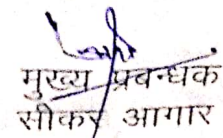 मुख्य प्रबन्धक
सीकर आगार